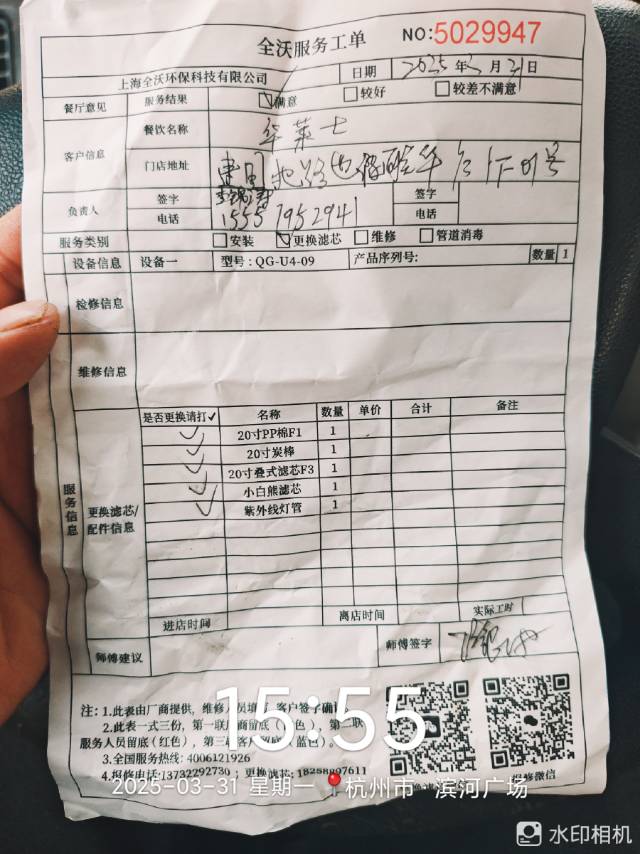 全沃服务工单 NO:5029947
上海全沃环保科技有限公司 日期 2025年3月31日
餐厅意见 服务结果 满意 较好 较差不满意
客户信息 餐饮名称 华莱士
门店地址
负责人 签字 签字
电话 15557952941 电话
服务类别 安装 更换滤芯 维修 管道消毒
设备信息 设备一 型号:QG-U4-09 产品序列号: 数量 1
检修信息
维修信息
服务信息 更换滤芯/配件信息
是否更换请打✓ 名称 数量 单价 合计 备注
✓ 20寸PP棉F1 1
✓ 20寸炭棒 1
✓ 20寸叠式滤芯F3 1
✓ 小白熊滤芯 1
✓ 紫外线灯管 1
进店时间 离店时间 实际工时
师傅建议 师傅签字
注:1.此表由厂商提供,维修人员填写,客户签字确认
2.此表一式三份,第一联厂商留底(白色),第二联
服务人员留底(红色),第三联客户留底(蓝色)。
3.全国服务热线:4006121926
4.报修电话:13732292730;更换滤芯:
报修微信
15:55
2025-03-31 星期一 杭州市·滨河广场
水印相机